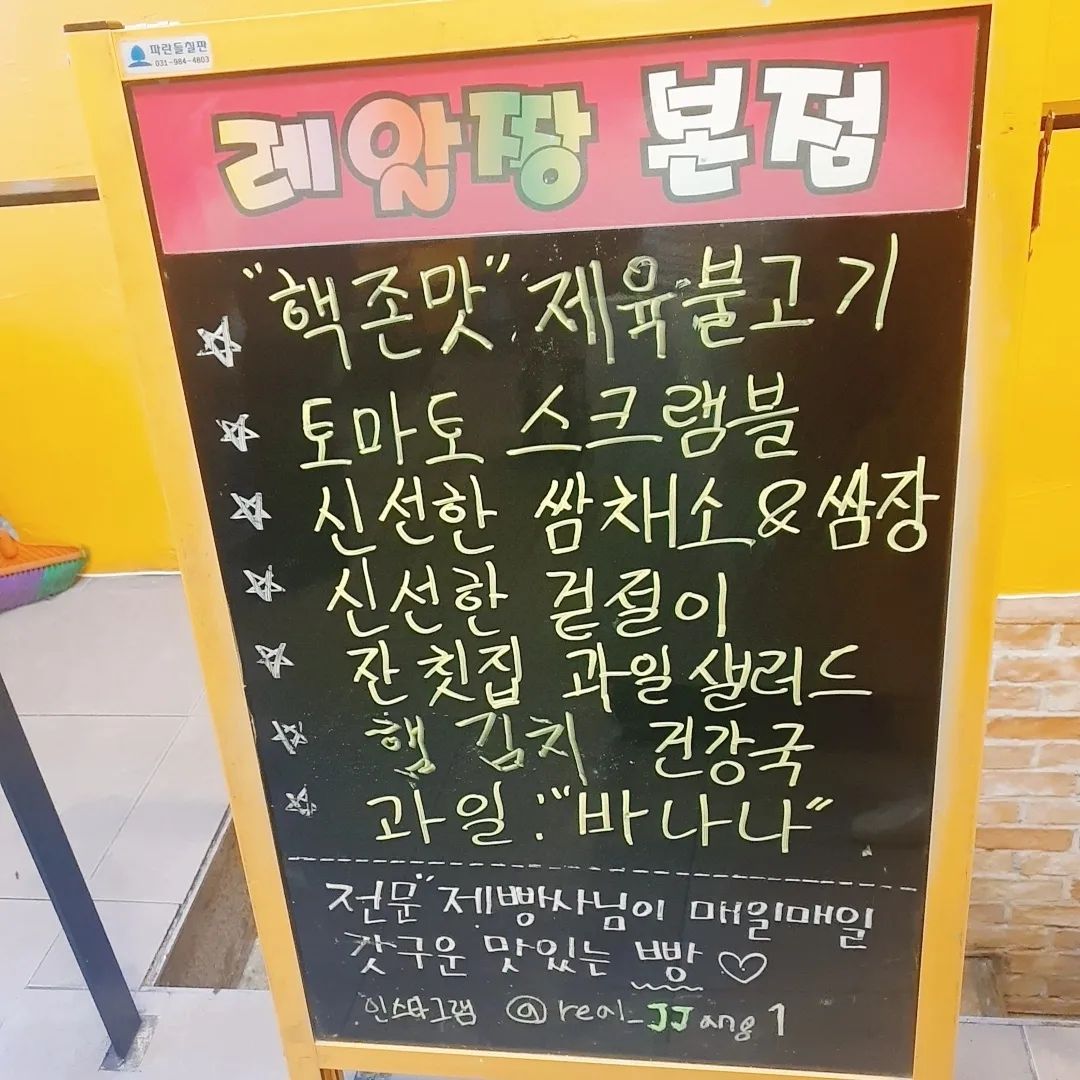 파란들칠판
031-984-4803
레알짱 본점
"핵존맛" 제육불고기
토마토 스크램블
신선한 쌈채소 & 쌈장
신선한 겉절이
잔칫집 과일샐러드
햄 김치 건강국
과일: "바나나"
전문 "제빵사님이 매일매일
갓구운 맛있는 빵 ♡
인스타그램 @real_JJang1